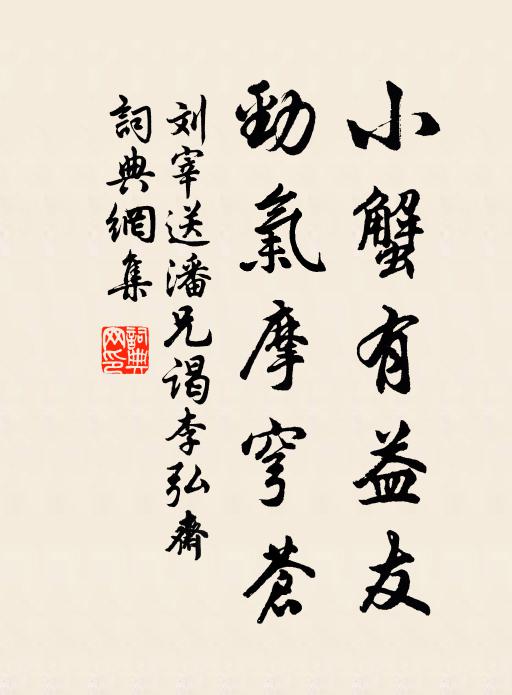 小蟹有益友
勁氣摩穹蒼
刘宰送潘兄谒李弘齋
詞典網集
詞典網印